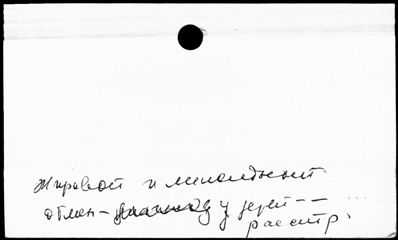 Жировой и липоидный
обмен- у детей --
расстр.